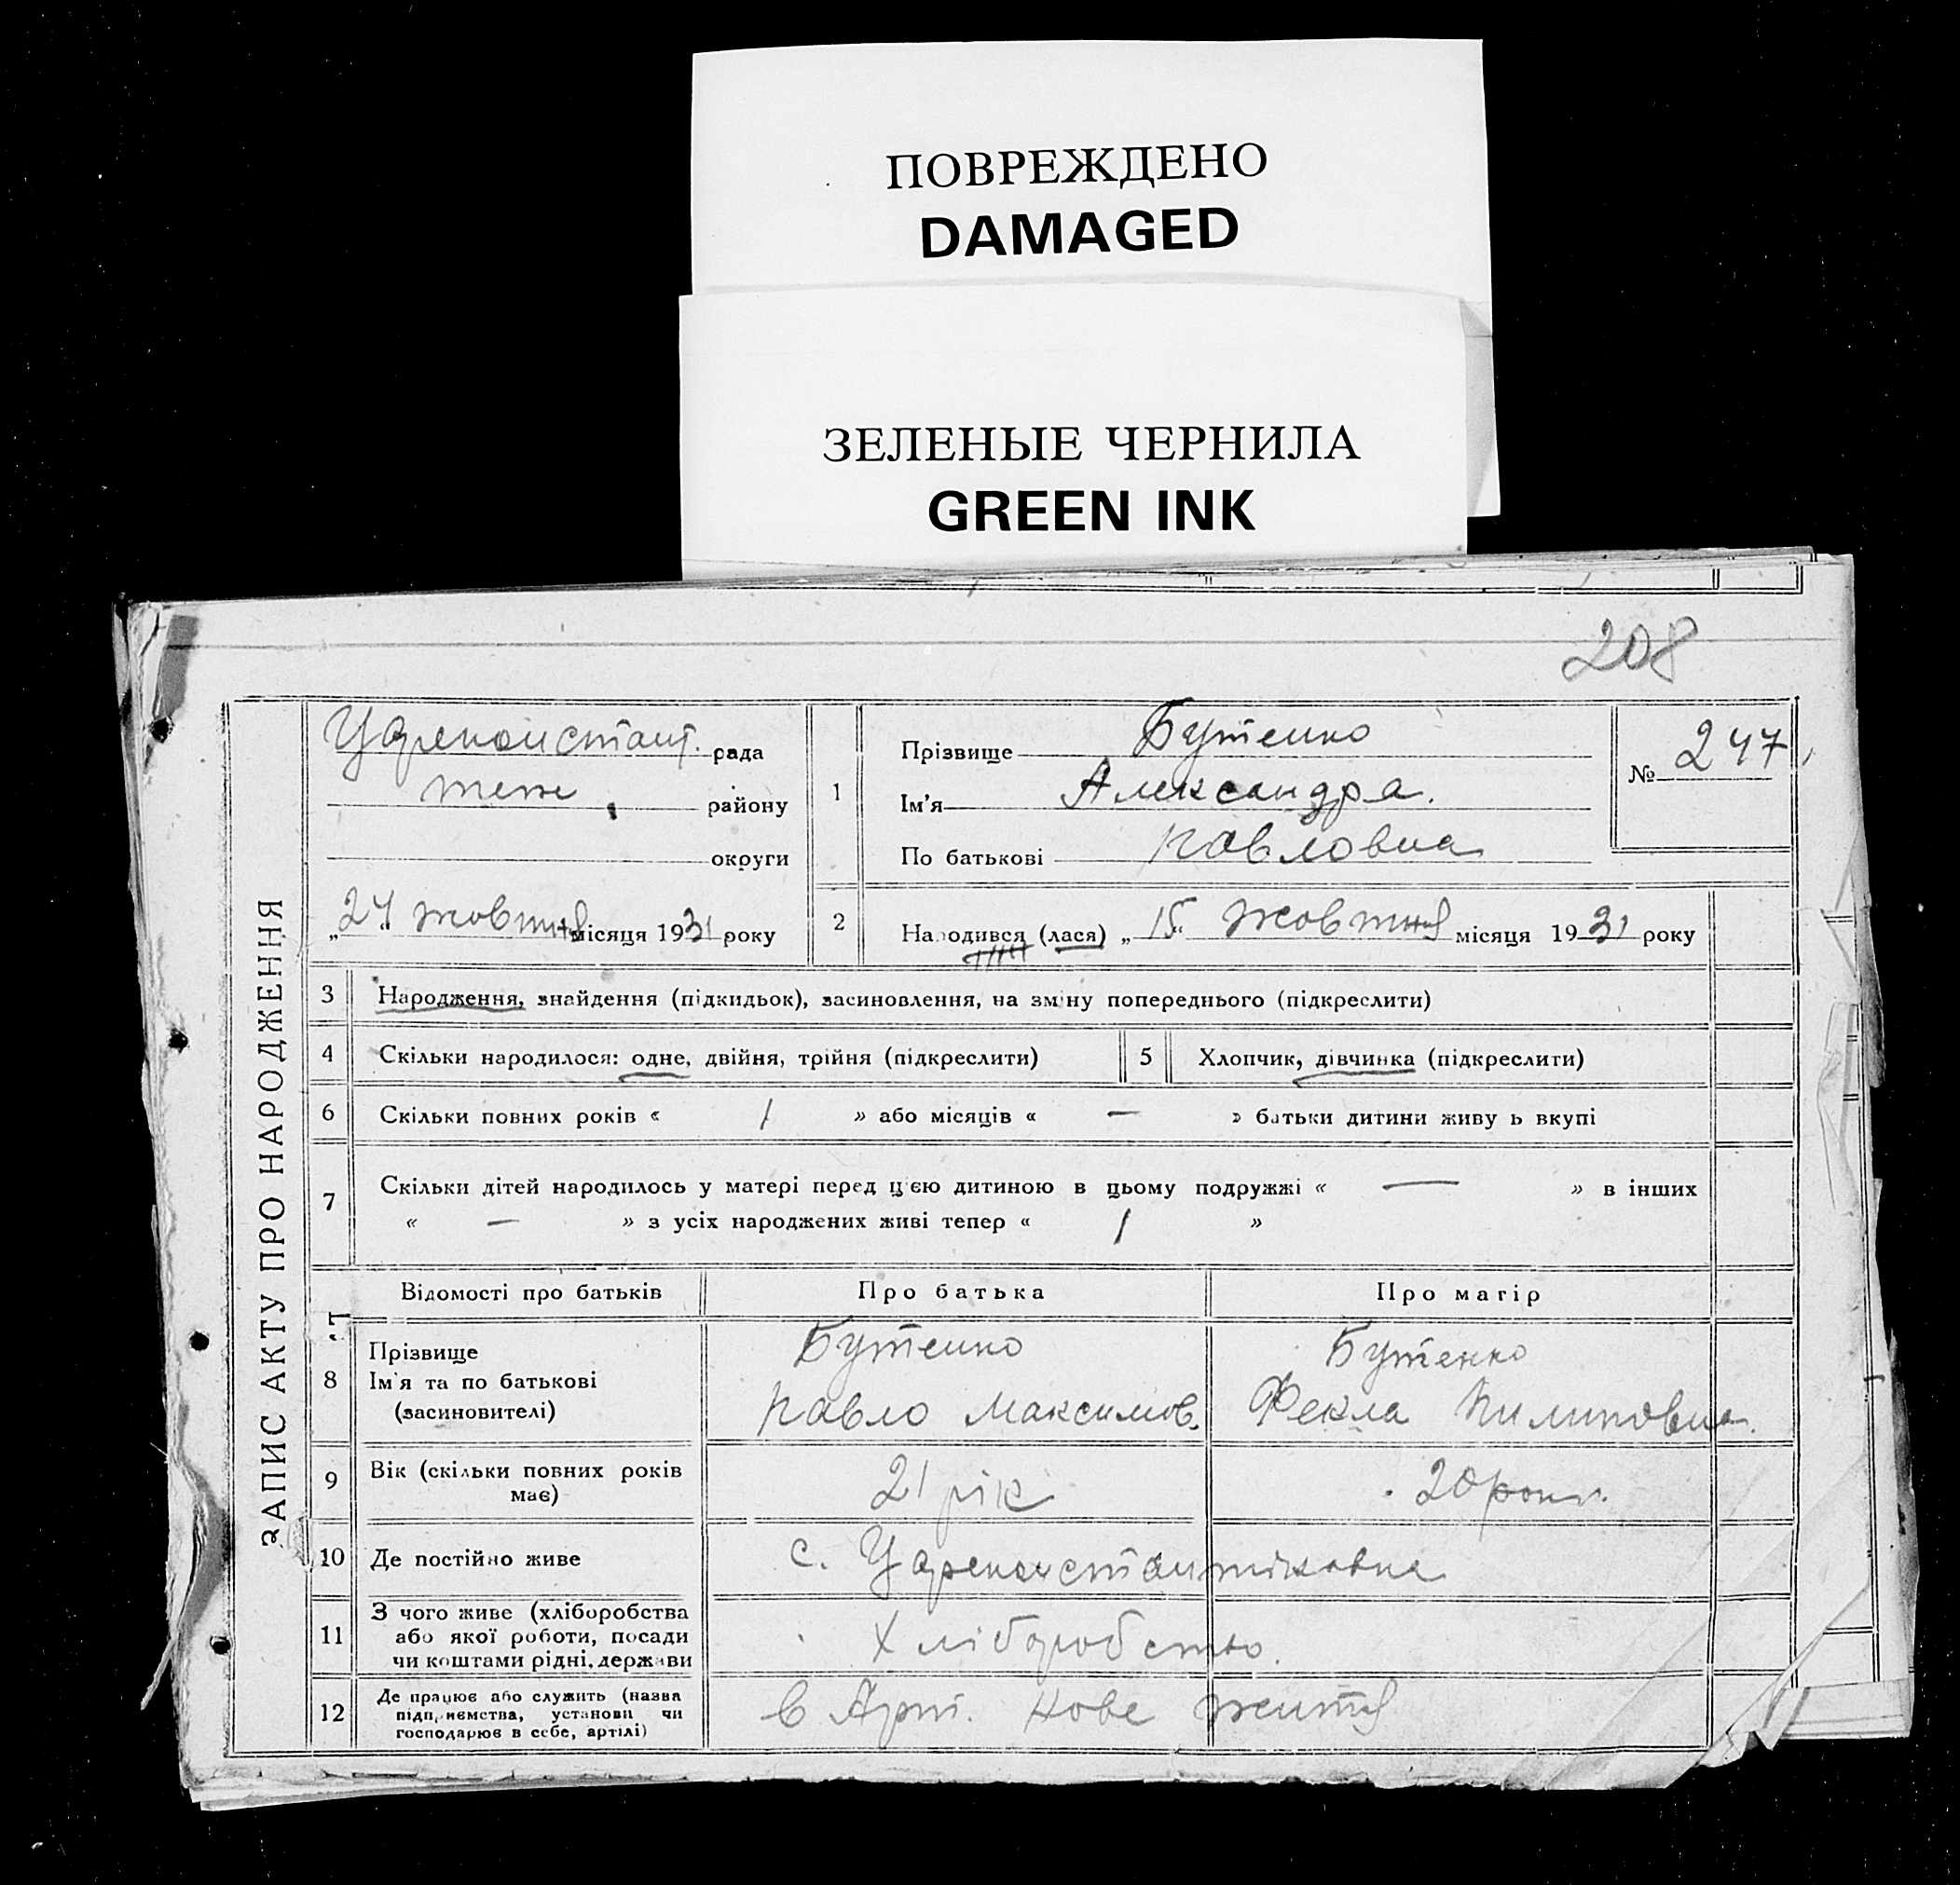 ПОВРЕЖДЕНО
DAMAGED
ЗЕЛЕНЫЕ ЧЕРНИЛА
GREEN INK
208
ЗАПИС АКТУ ПРО НАРОДЖЕННЯ
Цареконстант. рада
теж району
округи
„24“ жовтня місяця 1931 року
1
Прізвище Бутенко
Ім'я Александра.
По батькові Павловна
№ 247
2 Народився (лася) „15“ жовтня місяця 1931 року
3 Народження, знайдення (підкидьок), засиновлення, на зміну попереднього (підкреслити)
4 Скільки народилося: одне, двійня, трійня (підкреслити) 5 Хлопчик, дівчинка (підкреслити)
6 Скільки повних років « 1 » або місяців « — » батьки дитини живуть вкупі
7 Скільки дітей народилось у матері перед цією дитиною в цьому подружжі « — » в інших
« — » з усіх народжених живі тепер « 1 »
Відомості про батьків Про батька Про матір
8 Прізвище Бутенко Бутенко
Ім'я та по батькові Павло Максимов. Фекла Пилиповна.
(засиновителі)
9 Вік (скільки повних років має) 21 рік 20 роки.
10 Де постійно живе с. Цареконстантіновка
11 З чого живе (хліборобства
або якої роботи, посади Хліборобство.
чи коштами рідні, держави
12 Де працює або служить (назва
підприємства, установи чи в Арт. Нове життя
господарює в себе, артілі)